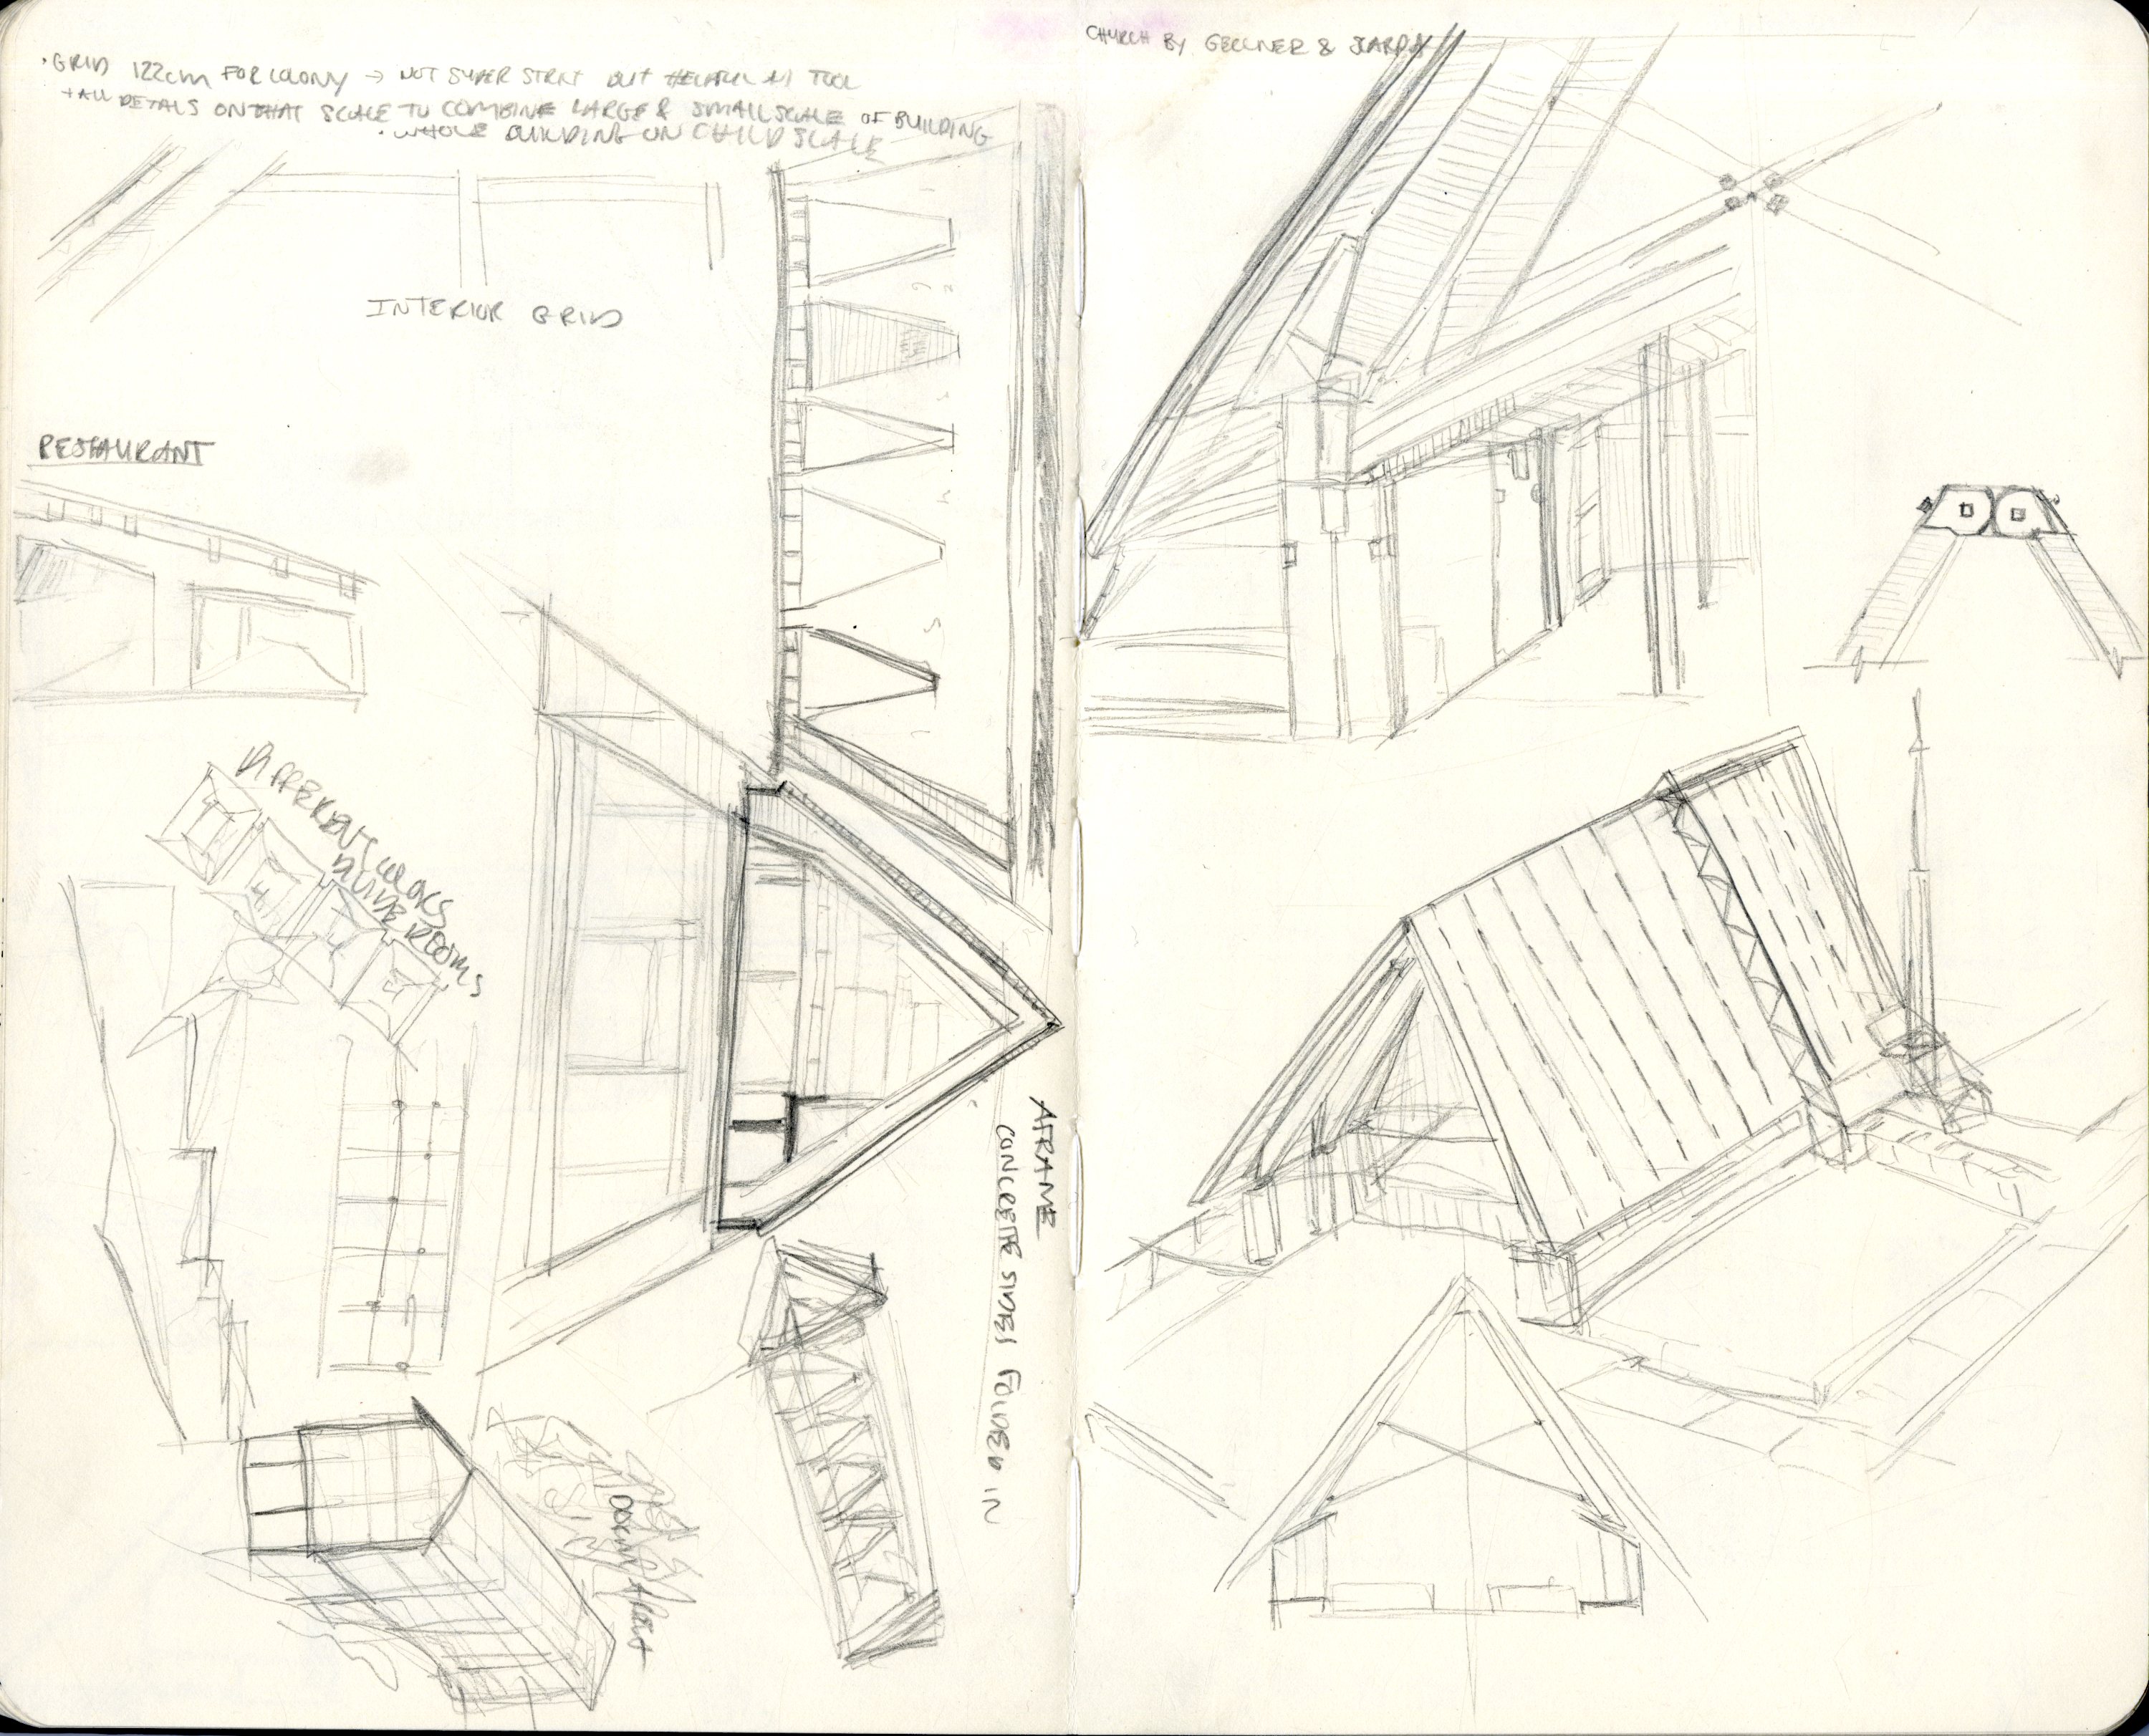 · GRID 122cm FOR COLONY → NOT SUPER STRICT BUT HELPFUL AS TOOL
+ ALL DETAILS ON THAT SCALE TO COMBINE LARGE & SMALL SCALE OF BUILDING
· WHOLE BUILDING ON CHILD SCALE
INTERIOR GRID
RESTAURANT
DIFFERENT COLORS
DINING ROOMS
AFRAME
CONCRETE SIDES FOLDED IN
DOWN
CHURCH BY GELLNER & SCARPA